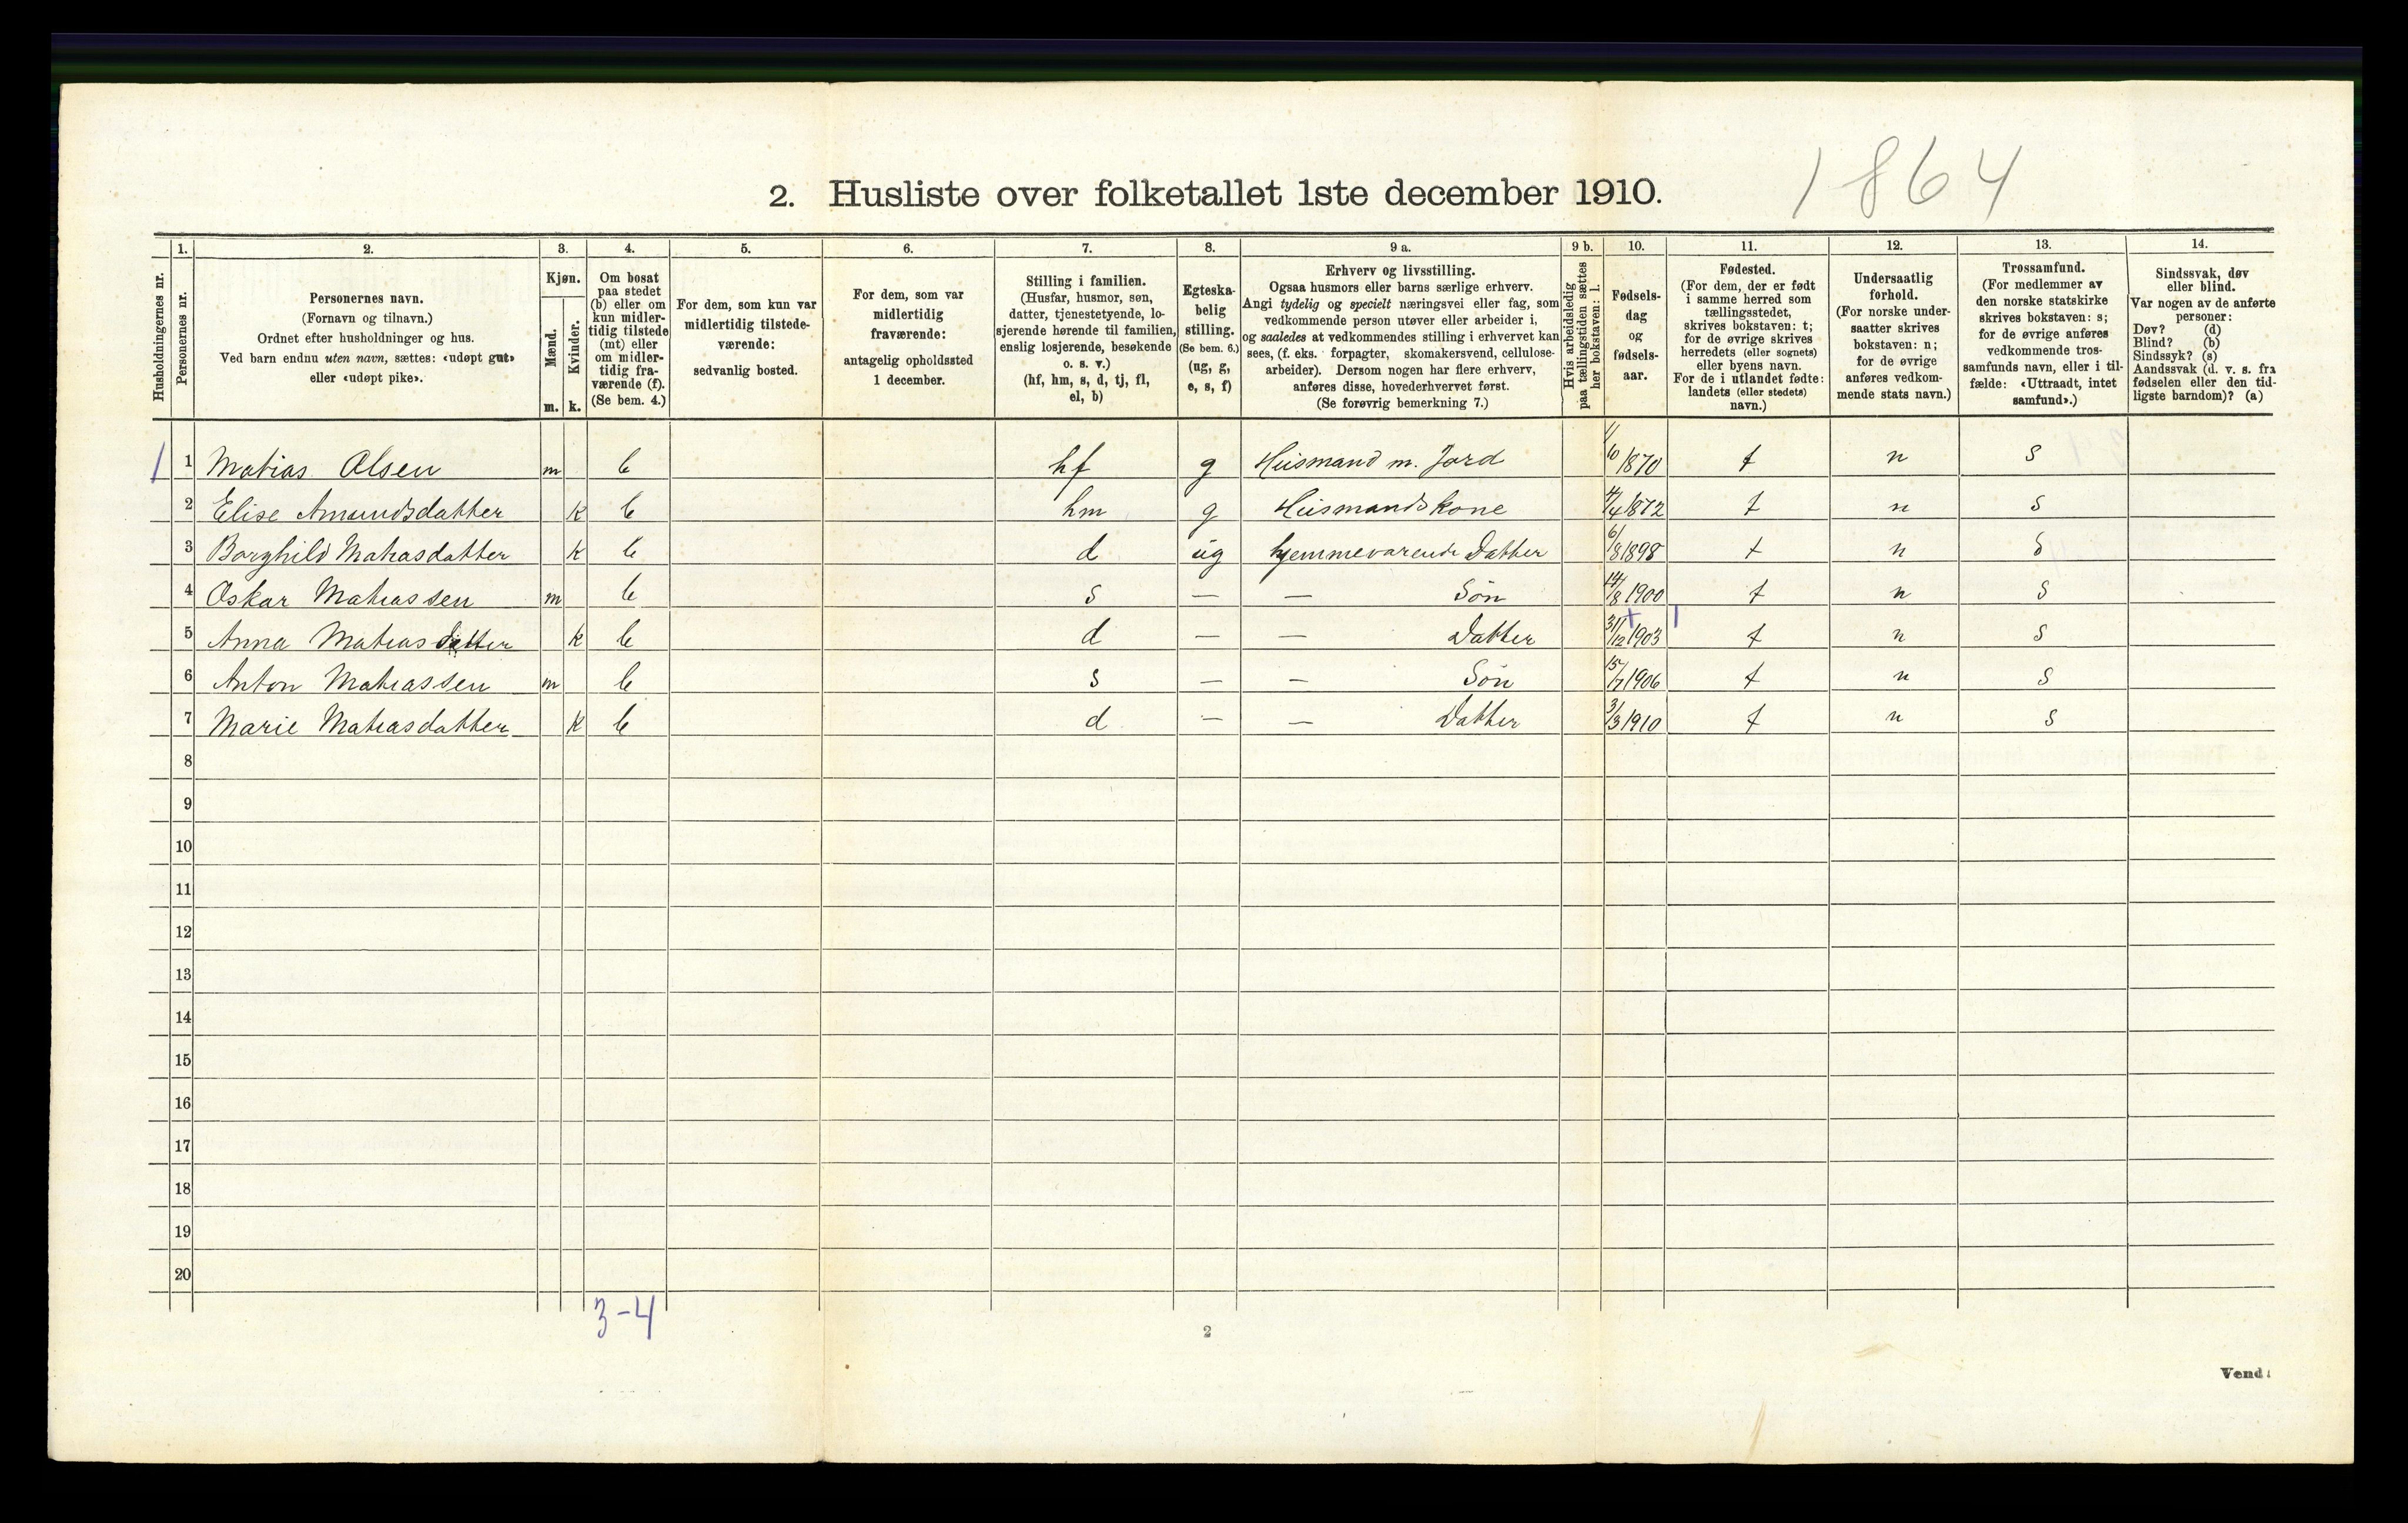 1864
2. Husliste over folketallet 1ste december 1910.
Husholdningernes nr.
1.
Personernes nr.
2.
Personernes navn.
(Fornavn og tilnavn.)
Ordnet efter husholdninger og hus.
Ved barn endnu uten navn, sættes: «udøpt gut»
eller «udøpt pike».
3.
Kjøn.
Mænd.
m.
Kvinder.
k.
4.
Om bosat
paa stedet
(b) eller om
kun midler-
tidig tilstede
(mt) eller
om midler-
tidig fra-
værende (f).
(Se bem. 4.)
5.
For dem, som kun var
midlertidig tilstede-
værende:
sedvanlig bosted.
6.
For dem, som var
midlertidig
fraværende:
antagelig opholdssted
1 december.
7.
Stilling i familien.
(Husfar, husmor, søn,
datter, tjenestetyende, lo-
sjerende hørende til familien,
enslig losjerende, besøkende
o. s. v.)
(hf, hm, s, d, tj, fl,
el, b)
8.
Egteska-
belig
stilling.
(Se bem. 6.)
(ug, g,
e, s, f)
9 a.
Erhverv og livsstilling.
Ogsaa husmors eller barns særlige erhverv.
Angi tydelig og specielt næringsvei eller fag, som
vedkommende person utøver eller arbeider i,
og saaledes at vedkommendes stilling i erhvervet kan
sees, (f. eks. forpagter, skomakersvend, cellulose-
arbeider). Dersom nogen har flere erhverv,
anføres disse, hovederhvervet først.
(Se forøvrig bemerkning 7.)
9 b.
Hvis arbeidsledig
paa tællingstiden sættes
her bokstaven: l.
10.
Fødsels-
dag
og
fødsels-
aar.
11.
Fødested.
(For dem, der er født
i samme herred som
tællingsstedet,
skrives bokstaven: t;
for de øvrige skrives
herredets (eller sognets)
eller byens navn.
For de i utlandet fødte:
landets (eller stedets)
navn.)
12.
Undersaatlig
forhold.
(For norske under-
saatter skrives
bokstaven: n;
for de øvrige
anføres vedkom-
mende stats navn.)
13.
Trossamfund.
(For medlemmer av
den norske statskirke
skrives bokstaven: s;
for de øvrige anføres
vedkommende tros-
samfunds navn, eller i til-
fælde: «Uttraadt, intet
samfund».)
14.
Sindssvak, døv
eller blind.
Var nogen av de anførte
personer:
Døv? (d)
Blind? (b)
Sindssyk? (s)
Aandssvak (d. v. s. fra
fødselen eller den tid-
ligste barndom)? (a)
1 1 Matias Olsen m b hf g Husmand m. Jord 1/10 1870 t n s
2 Elise Amundsdatter k b hm g Husmandskone 4/4 1872 t n s
3 Borghild Matiasdatter k b d ug hjemmevarende Datter 6/8 1898 t n s
4 Oskar Matiassen m b s — — Søn 14/8 1900 t n s
5 Anna Matiasdatter k b d — — Datter 31/12 1903 t n s
6 Anton Matiassen m b s — — Søn 15/7 1906 t n s
7 Marie Matiasdatter k b d — — Datter 3/3 1910 t n s
8
9
10
11
12
13
14
15
16
17
18
19
20
3-4
2
Vend!